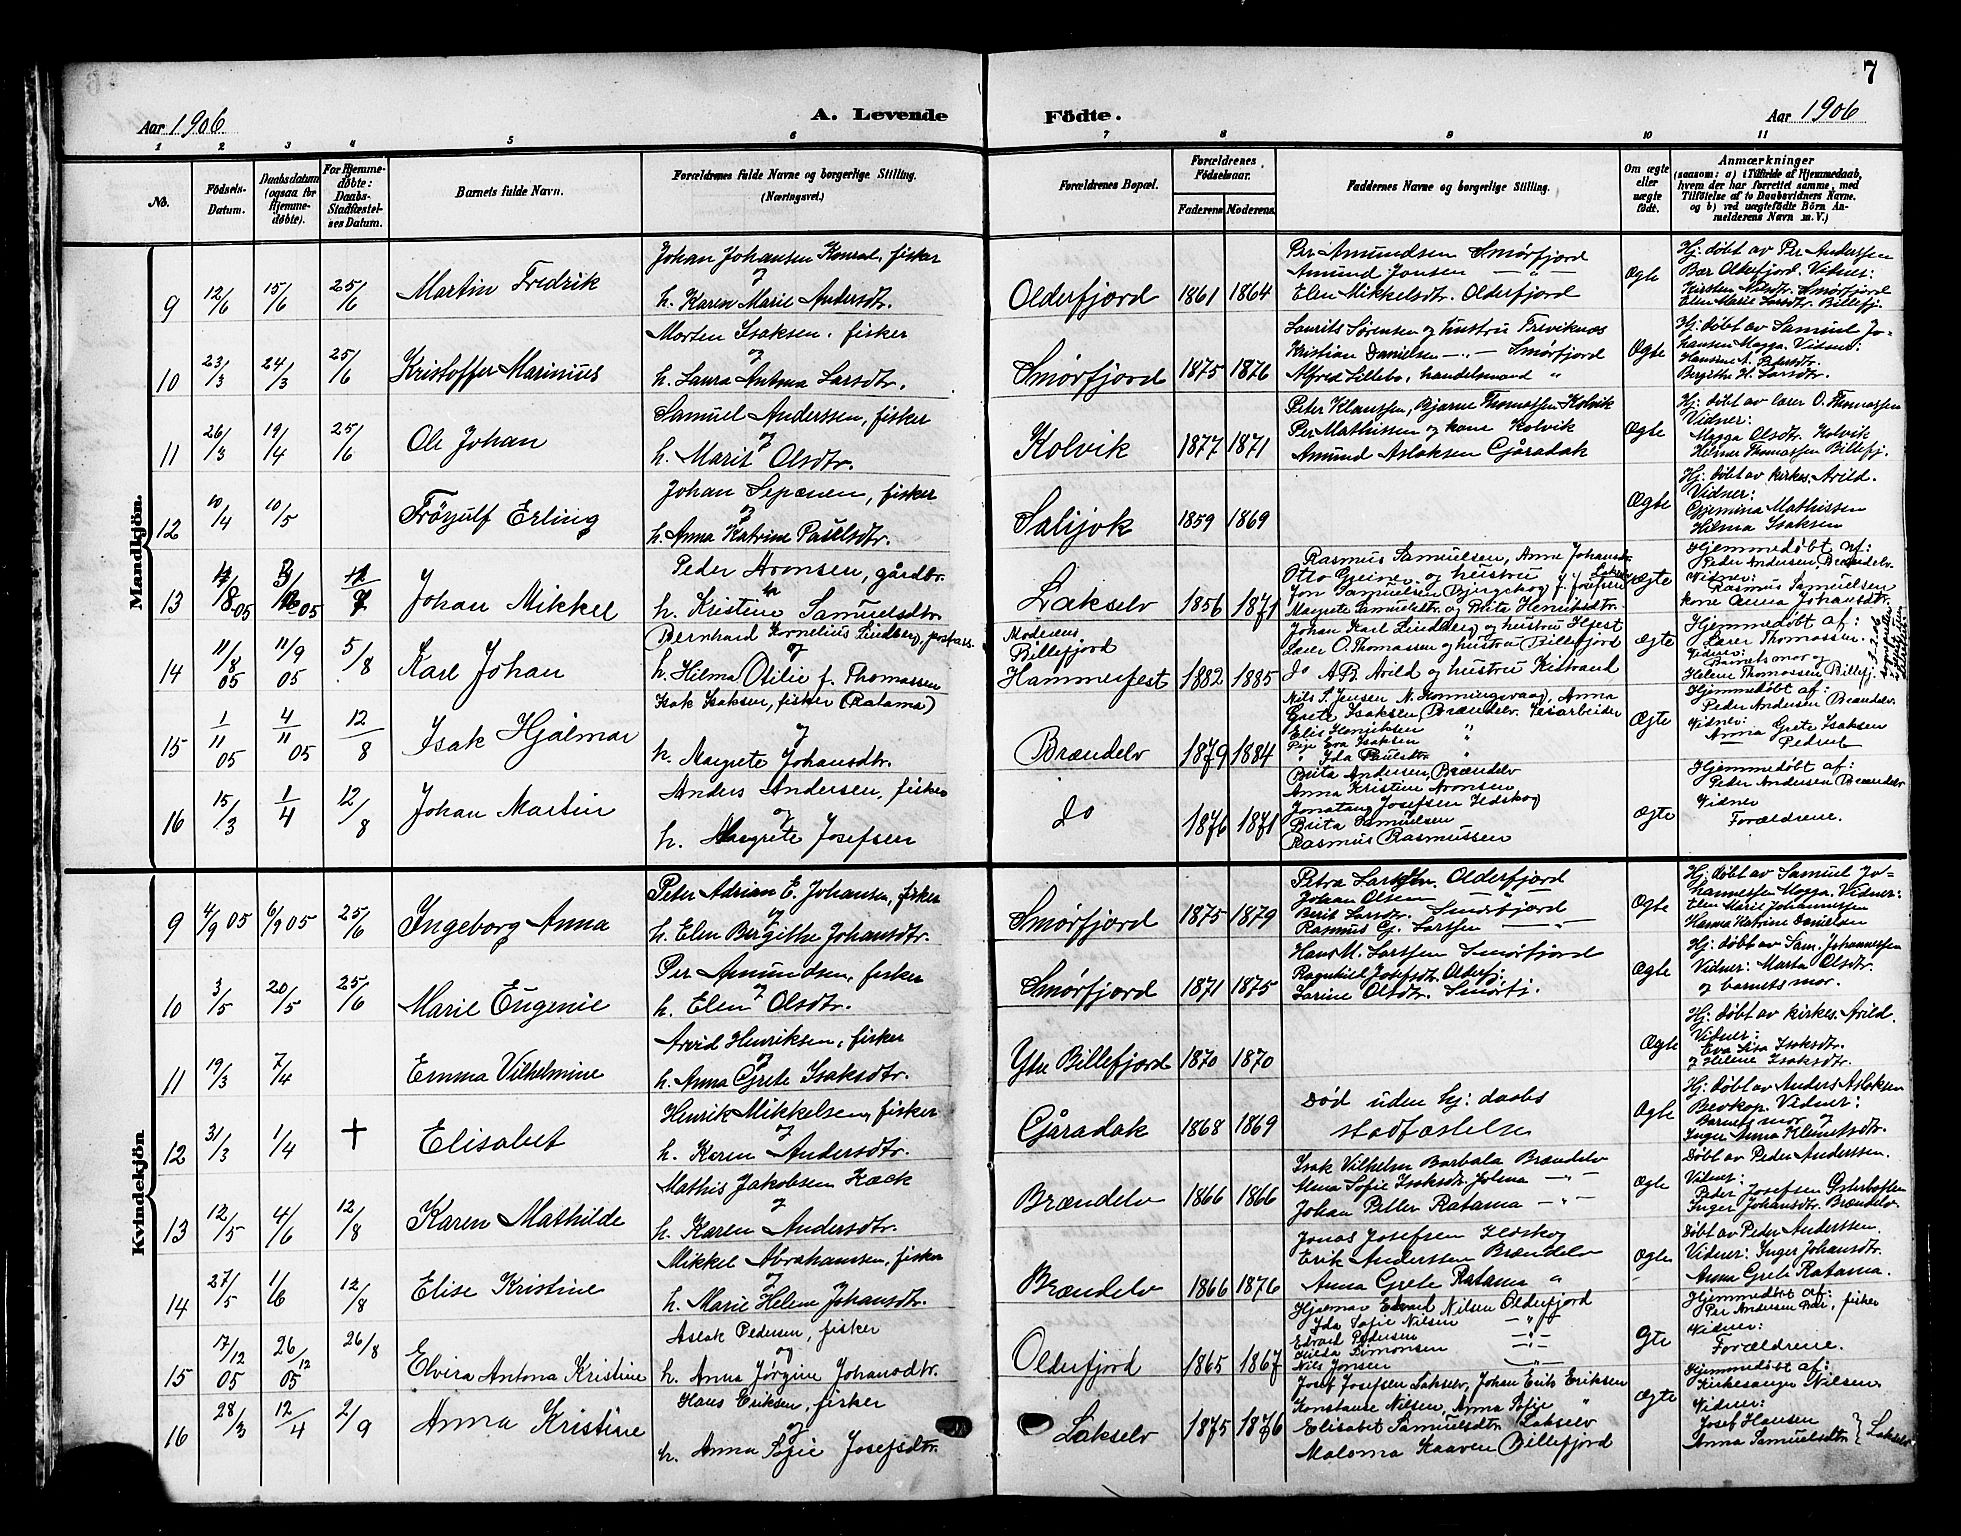 7
Aar 1906
A. Levende Födte.
Aar 1906
1 2 3 4 5 6 7 8 9 10 11
No.
Födsels-Datum.
Daabsdatum (ogsaa for Hjemme-døbte).
For Hjemme-døbte: Daabs-Stadfæstel-ses Datum.
Barnets fulde Navn.
Forældrenes fulde Navne og borgerlige Stilling. (Næringsvei.)
Forældrenes Bopæl.
Forældrenes Födselsaar.
Faderens Moderens
Faddernes Navne og borgerlige Stilling.
Om ægte eller uægte født.
Anmærkninger
(saasom: a) i Tilfælde af Hjemmedaab, hvem der har forrettet samme, med Tilföielse af to Daabsvidners Navne. og b) ved uægtefödte Börn An-melderens Navn m. V.)
Mandkjön.
9 12/6 15/6 25/6 Martin Fredrik
Johan Johansen Konrad, fisker
og
h. Karen Marie Andersdtr.
Olderfjord 1861 1864
Per Amundsen Smørfjord
Amund Jonsen — " —
Elen Mikkelsdtr. Olderfjord
Ægte
Hj. døbt av Per Anderssen
Bær Olderfjord. Vidner:
Kirsten Nilsdtr. Smørfjord
Elen Marie Larsdtr. Billefj.
10 23/3 24/3 25/6 Kristoffer Marinius
Morten Isaksen, fisker
og
h. Laura Antona Larsdtr.
Smørfjord 1875 1876
Laurits Sørensen og hustru Treviknæs
Kristian Danielsen — " — Smørfjord
Alfred Lillebo, handelsmand "
Ægte
Hj. døbt av Samuel Jo-
hansen Magga. Vidner:
Hansine N. Pedersdtr.
Bergithe H. Larsdtr.
11 26/3 19/4 25/6 Ole Johan
Samuel Anderssen, fisker
og
h. Marit Olsdtr.
Kolvik 1877 1871
Peter Klaussen, Bjarne Thomassen Kolvik
Per Mathissen og kone Kolvik
Amund Aslaksen Gjåradak
Ægte
Hj. døbt av lærer O. Thomassen
Vidner:
Magga Olsdtr. Kolvik
Helmer Thomassen Billefj.
12 10/4 10/5 Frøyulf Erling
Johan Sepænen, fisker
og
h. Anna Katrine Paulsdtr.
Salijok 1859 1869
Ægte
Hj. døbt av kirkes. Arild.
Vidner:
Gjemina Mathissen
Hilma Isaksen
13 Johan Mikkel
Peder Aronsen, gårdbr.
h. Kristine Samuelsdtr.
Lakselv 1856 1871
Rasmus Samuelsen, Anne Johansdtr.
Otto Greiner og hustru
Jon Samuelsen Bjergskog
Margrete Samuelsdtr. og Brita Henriksdtr.
Ægte
Hjemmedøbt af:
Peder Andersen, Brændelv
Vidner:
Rasmus Samuelsen
kone Anna Johansdtr.
14 11/8 05 11/9 05 5/8 Karl Johan
Bernhard Kornelius Lindberg,
og
h. Hilma Otilie f. Thomassen
Moderens
Billefjord
Hammerfest 1882 1885
Johan Karl Lindberg og hustru Hfest
Lærer O. Thomassen og hustru Billefjord
do A.B. Arild og hustru Kistrand
Ægte
Hjemmedøbt af:
Lærer Thomassen.
Vidner:
Barnets mor og
Helene Thomassen Billefj.
15 1/11 05 4/11 05 12/8 Isak Hjalmar
Isak Isaksen, fisker (Ratama)
og
h. Margrete Johansdtr.
Brændelv 1879 1884
Nils S. Jensen N. Honningsvaag, Anna
Grete Isaksen, Brændelv. Løsarbeider
Elis Henriksen "
Pige Eva Isaksen "
" Ida Paulsdtr. "
Ægte
Hjemmedøbt af:
Peder Andersen Brændelv.
Vidner:
Anna Grete Isaksen
16 15/3 1/4 12/8 Johan Martin
Anders Andersen, fisker
og
h. Margrete Josefsen
do 1876 1871
Brita Andersen, Brændelv
Anna Kristine Aronsen
Jonatang Josefsen Ildskog
Brita Samuelsen
Rasmus Rasmussen
Ægte
Hjemmedøbt af:
Peder Andersen Brændelv
Vidner
Forældrene.
Kvindekjön
9 4/9 05 6/9 05 25/6 Ingeborg Anna
Peter Adrian E. Johansen, fisker
og
h. Elen Bergithe Johansdtr.
Smørfjord 1875 1879
Petra Larssen. Olderfjord
Johan Olsen — " —
Berit Larsdtr. Smørfjord
Rasmus Cj. Larssen — " —
Ægte
Hj. døbt av Samuel Jo-
hannessen Magga. Vidner:
Elen Marie Johannessen
Hanna Katrine Danielsen
10 3/5 20/5 25/6 Marie Eugenie
Per Amundsen, fisker
og
h. Elen Olsdtr.
Smørfjord 1871 1875
Hans M. Larssen Smørfjord
Ragnhild Josefsdtr. Olderfj.
Larine Olsdtr. Smørfj.
Ægte
Hj. døbt av Sam. Johannessen
Vidner: Marta Olsdtr.
og barnets mor.
11 19/3 7/4 Emma Vilhelmine
Arvid Henriksen, fisker
og
h. Anna Grete Isaksdtr.
Ytre Billefjord 1870 1870
Ægte
Hj. døbt av kirkes. Arild.
Vidner:
Eva Lisa Isaksdtr.
og Helene Isaksdtr.
12 31/3 1/4 + Elisabet
Henrik Mikkelsen, fisker
og
h. Karen Andersdtr.
Gjåradak 1868 1869
Død uden hj: daabs
stadfæstelse
Ægte
Hj: døbt av Anders Aslaksen
Bevkop. Vidner:
Barnets mor og
Inger Anna Klemetsdtr.
13 12/5 4/6 12/8 Karen Mathilde
Mathis Jakobsen Kæck
og
h. Karen Andersdtr.
Brændelv 1866 1866
Isak Vilhelm Barbala Brændelv
Mena Sofie Isaksdtr. Johna — " —
Johan Petter Ratama — " —
Ægte
Døbt av Peder Anderssen.
Vidner:
Peder Josefsen Østerbotten
Inger Johansdtr. Brændelv
14 27/5 1/6 12/8 Elise Kristine
Mikkel Abrahamsen, fisker
og
h. Marie Helene Johansdtr.
Brændelv 1866 1876
Jonas Josefsen Ildskog
Erik Anderssen Brændelv
Anna Grete Ratama "
Ægte
Døbt av Peder Anderssen.
Vidner: Inger Johansdtr.
Anna Grete Ratama.
15 17/12 05 26/12 05 26/8 Elvira Antona Kristine
Aslak Pedersen, fisker
og
h. Anna Jørgine Johansdtr.
Olderfjord 1865 1867
Hjalmar Edvard Nilsen Olderfjord
Ida Sofie Nilsen — " —
Edvard Pedersen — " —
Hilda Simonsen — " —
Nils Jonsen — " —
Ægte
Hjemmedøbt af:
Per Andersen Bær, fisker
Vidner:
Forældrene.
16 28/3 12/4 2/9 Anna Kristine
Hans Eriksen, fisker
og
h. Anna Sofie Josefsdtr.
Lakselv 1875 1876
Josef Josefsen Lakselv, Johan Erik Eriksen
Konstanse Nilsen, Anna Sofie "
Elisabet Samuelsdtr. Lakselv
Maloma Kaaven Billefjord
Ægte
Hjemmedøbt af:
Kirkesanger Nilsen
Vidner:
Josef Hansen
Anna Samuelsdtr. } Lakselv